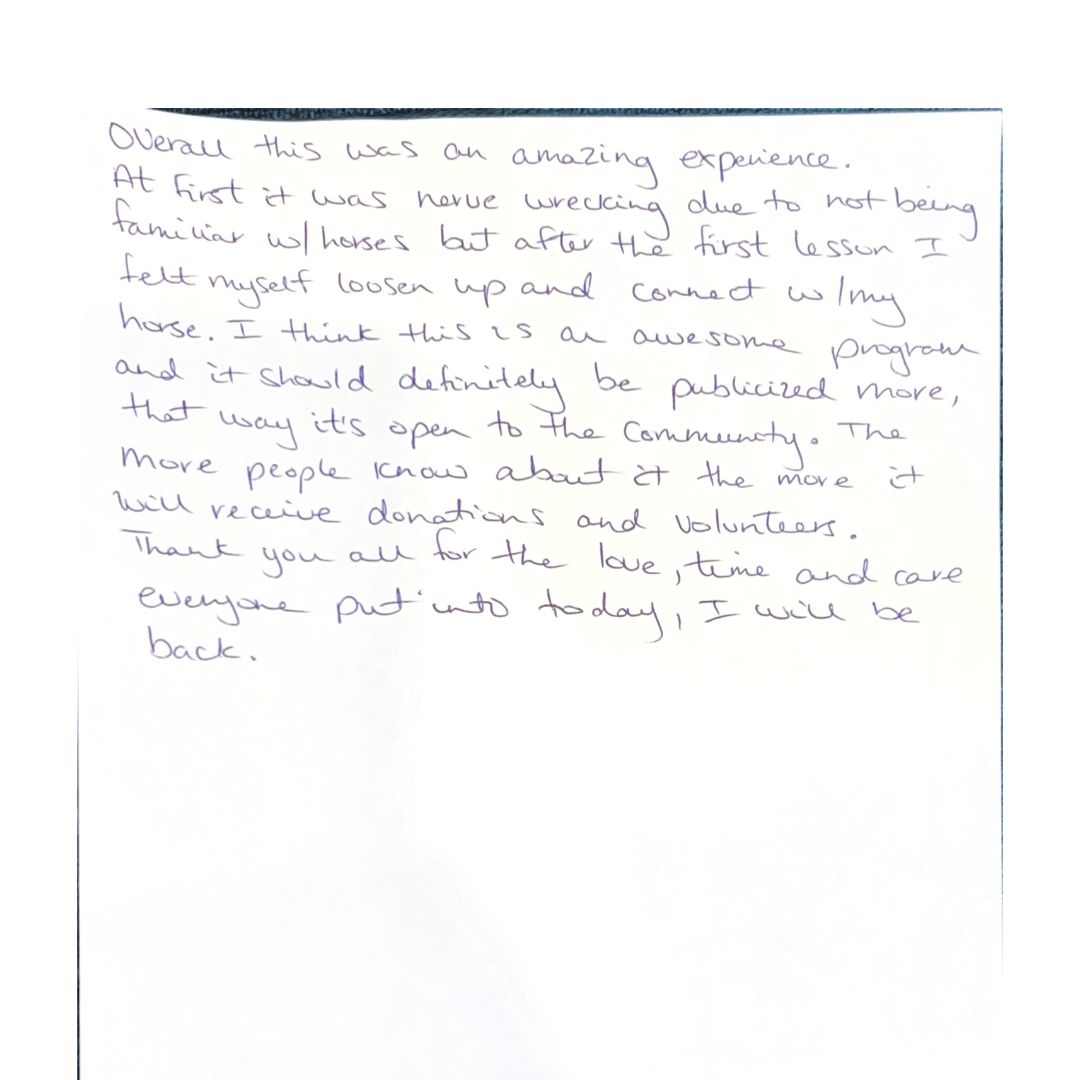 Overall this was an amazing experience.
At first it was nerve wrecking due to not being
familiar w/ horses but after the first lesson I
felt myself loosen up and connect w/ my
horse. I think this is an awesome program
and it should definitely be publicized more,
that way it's open to the Community. The
more people know about it the more it
will receive donations and volunteers.
Thank you all for the love, time and care
everyone put into today, I will be
back.